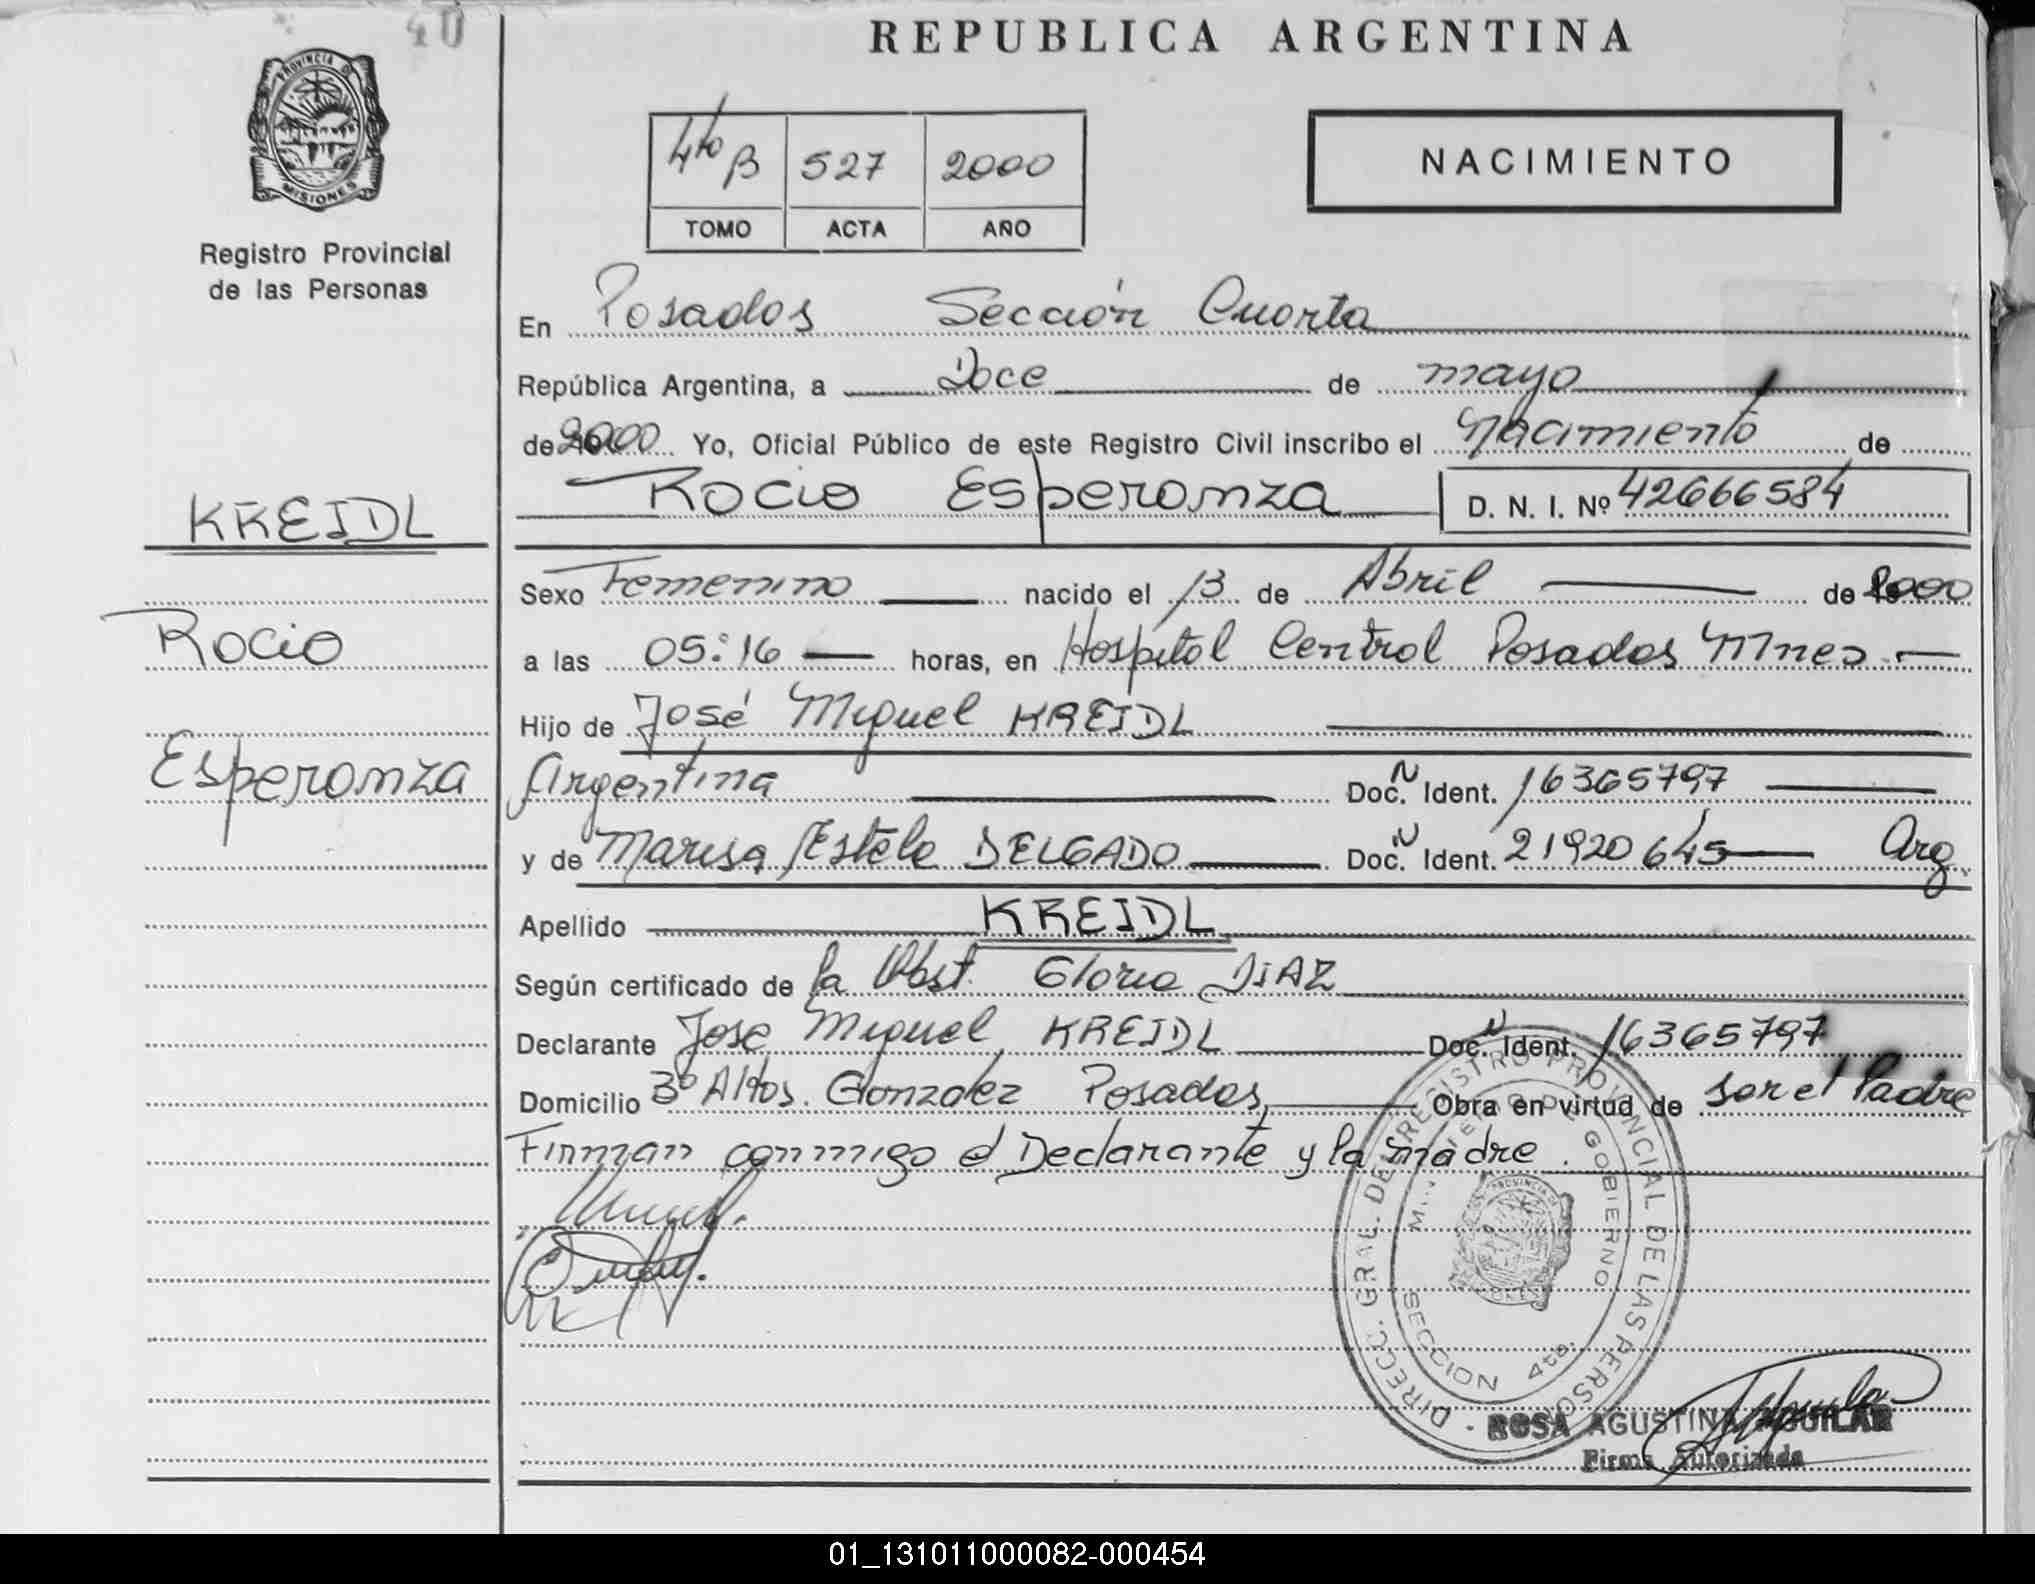 40
REPUBLICA ARGENTINA
PROVINCIA DE
MISIONES
Registro Provincial
de las Personas
4to B 527 2000
TOMO ACTA AÑO
NACIMIENTO
En Posadas Sección Cuarta
República Argentina, a Doce de mayo
de 2000 Yo, Oficial Público de este Registro Civil inscribo el Nacimiento de
Rocio Esperanza D. N. I. Nº 42666584
KREIDL
Rocio
Esperanza
Sexo Femenino nacido el 13 de Abril de 2000
a las 05:16 horas, en Hospital Central Posados Mnes
Hijo de José Miguel KREIDL
Argentina Doc. N Ident. 16365797
y de Marisa Estela DELGADO Doc. N Ident. 21920645 Arg.
Apellido KREIDL
Según certificado de la Obst. Gloria DIAZ
Declarante Jose Miguel KREIDL Doc. N Ident. 16365797
Domicilio 3º Altos. Gonzalez Posadas, Obra en virtud de ser el Padre
Firman conmigo el Declarante y la madre.
DIRECC. GRAL. DEL REGISTRO PROVINCIAL DE LAS PERSO
MINISTERIO DE GOBIERNO
SECCION 4ta.
ROSA AGUSTINA AGUILAR
Firma Autorizada
01_131011000082-000454